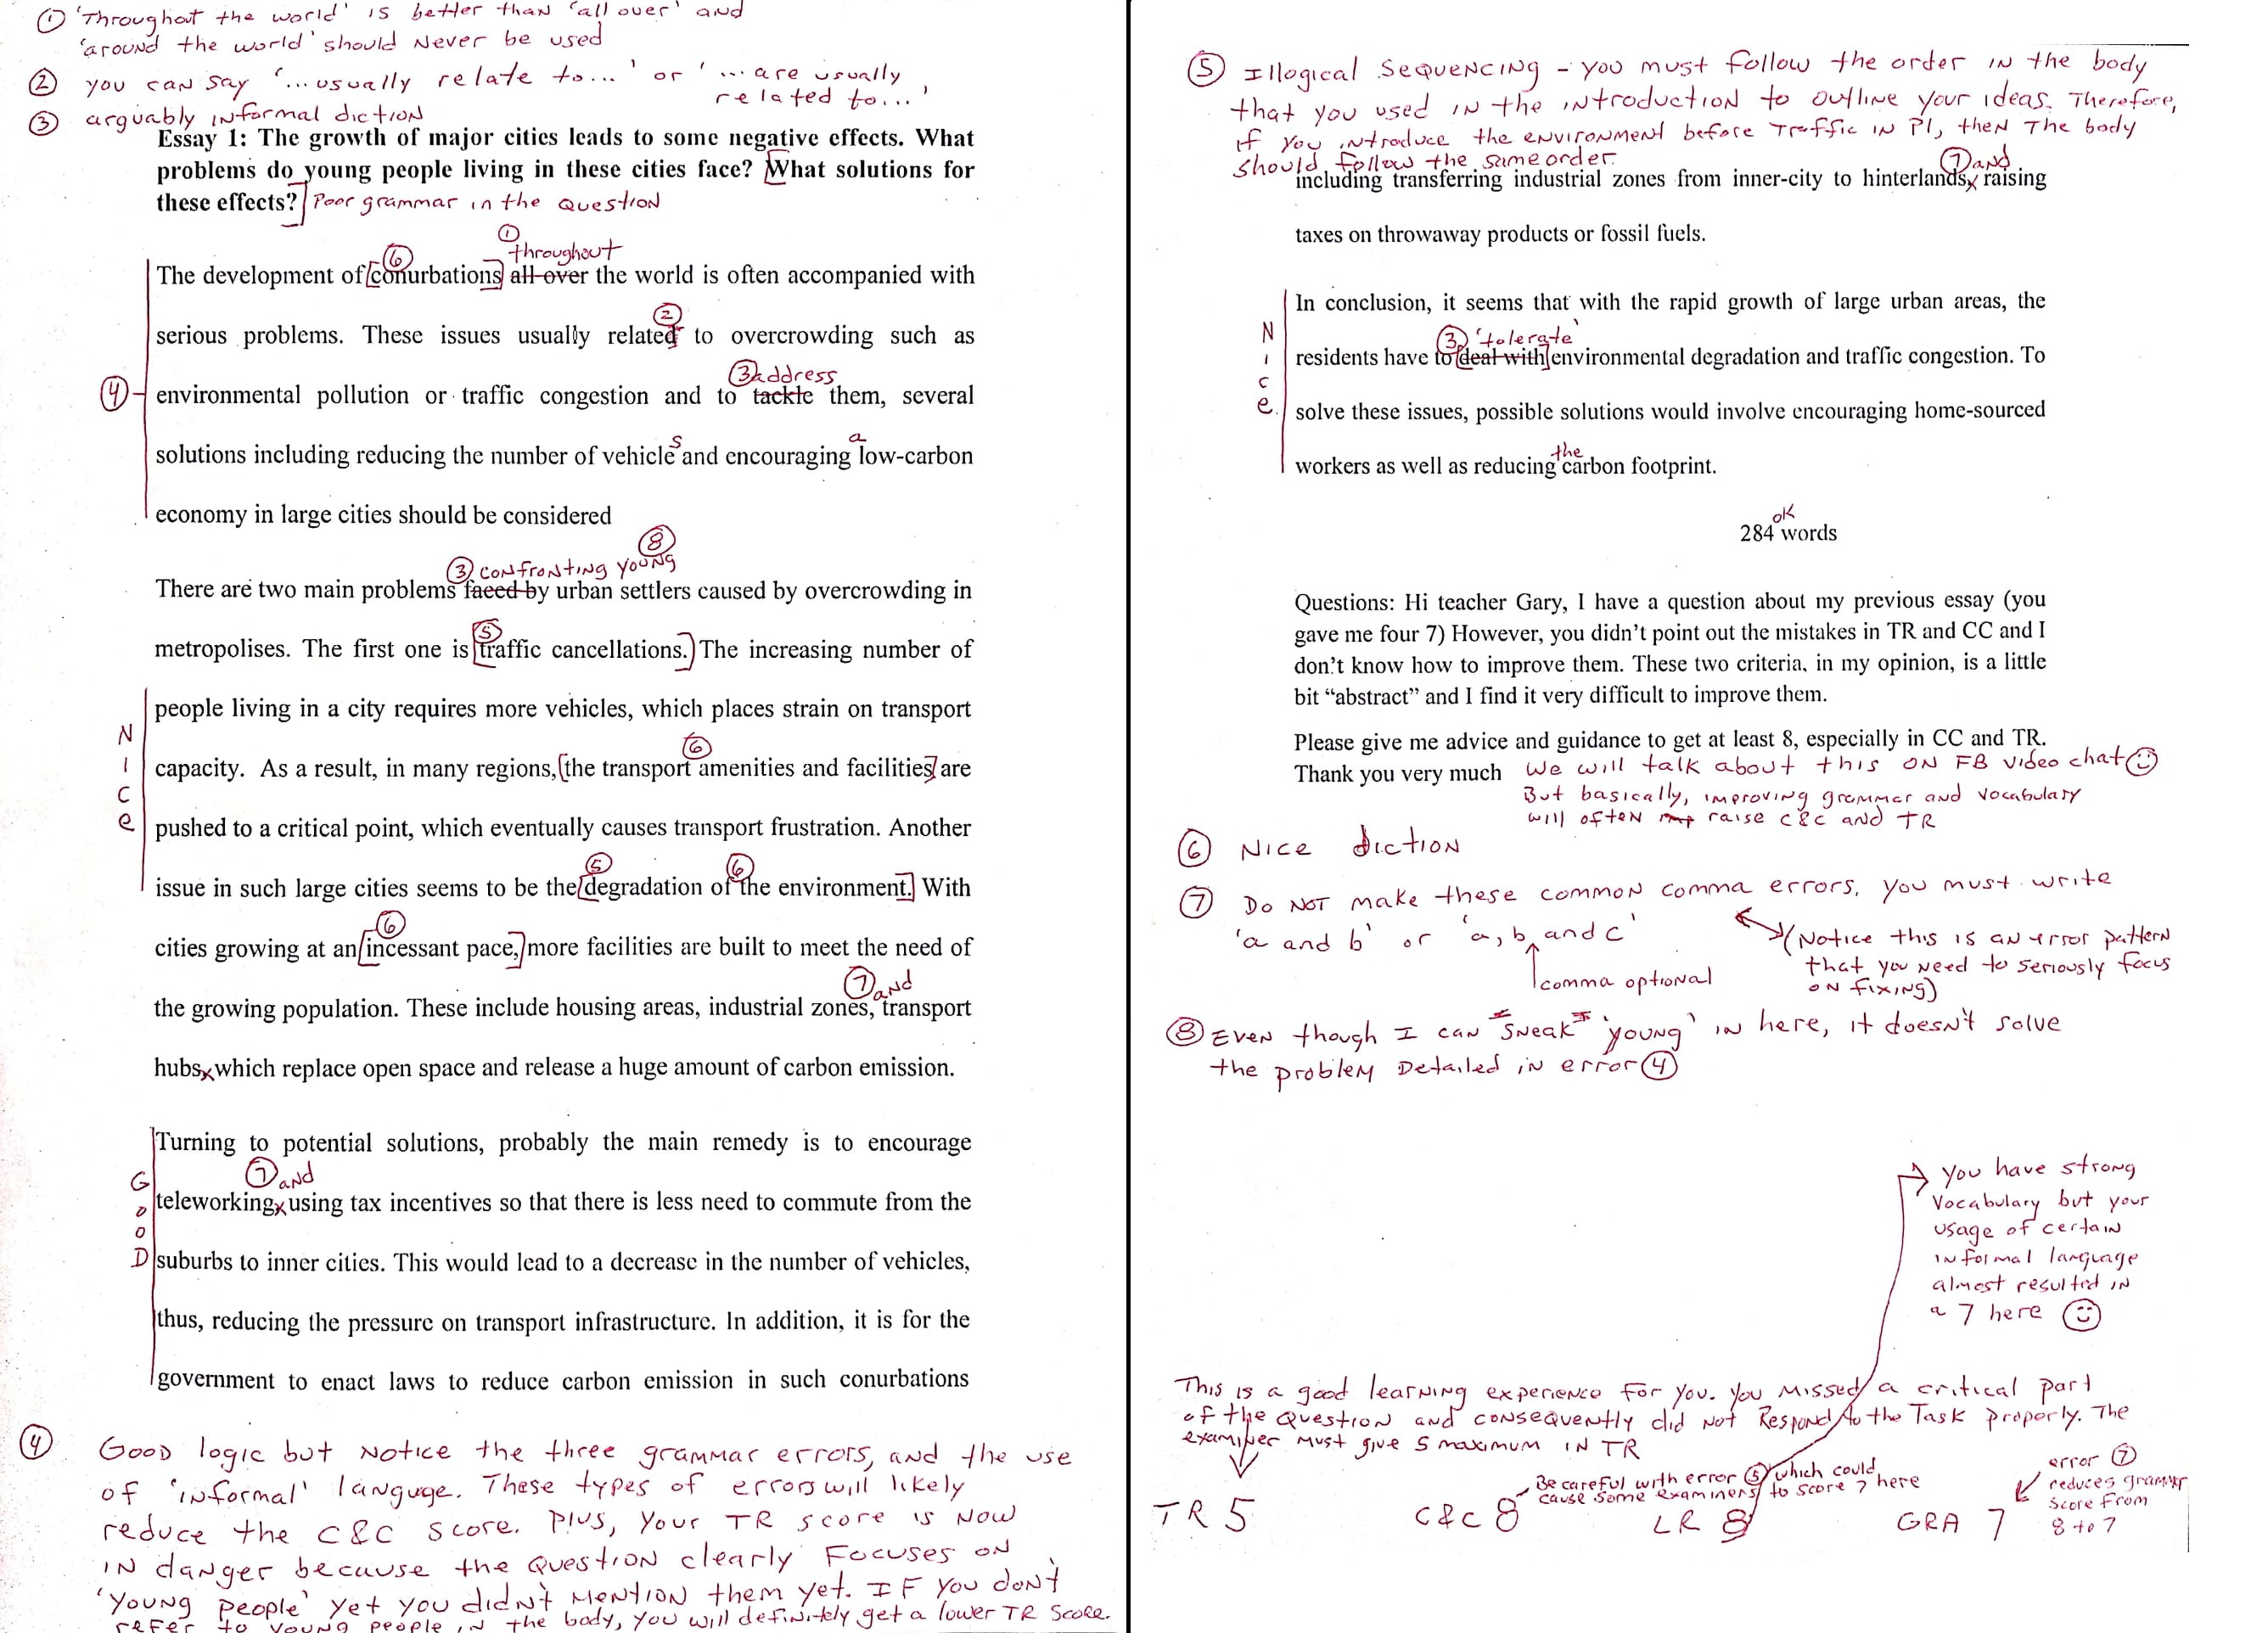 ① 'Throughout the world' is better than 'all over' and
'around the world' should never be used
② you can say '...usually relate to...' or '...are usually
related to...'
③ arguably informal diction
Essay 1: The growth of major cities leads to some negative effects. What
problems do young people living in these cities face? What solutions for
these effects? Poor grammar in the question
① throughout
⑥
The development of [conurbations] all over the world is often accompanied with
②
serious problems. These issues usually related to overcrowding such as
③ address
④ environmental pollution or traffic congestion and to tackle them, several
s a
solutions including reducing the number of vehicle and encouraging low-carbon
economy in large cities should be considered
⑧
③ confronting young
There are two main problems faced by urban settlers caused by overcrowding in
⑤
metropolises. The first one is [traffic cancellations.] The increasing number of
Nice
people living in a city requires more vehicles, which places strain on transport
⑥
capacity. As a result, in many regions, [the transport amenities and facilities] are
pushed to a critical point, which eventually causes transport frustration. Another
⑤ ⑥
issue in such large cities seems to be the [degradation of the environment.] With
⑥
cities growing at an [incessant pace,] more facilities are built to meet the need of
⑦ and
the growing population. These include housing areas, industrial zones, transport
hubs, which replace open space and release a huge amount of carbon emission.
Good
Turning to potential solutions, probably the main remedy is to encourage
⑦ and
teleworking, using tax incentives so that there is less need to commute from the
suburbs to inner cities. This would lead to a decrease in the number of vehicles,
thus, reducing the pressure on transport infrastructure. In addition, it is for the
government to enact laws to reduce carbon emission in such conurbations
④ Good logic but notice the three grammar errors, and the use
of 'informal' languge. These types of errors will likely
reduce the C&C score. Plus, your TR score is now
in danger because the question clearly focuses on
'young people' yet you didn't mention them yet. If you don't
refer to young people in the body, you will definitely get a lower TR score.
⑤ Illogical sequencing - you must follow the order in the body
that you used in the introduction to outline your ideas. Therefore,
if you introduce the environment before traffic in P1, then the body
should follow the same order.
⑦ and
including transferring industrial zones from inner-city to hinterlands, raising
taxes on throwaway products or fossil fuels.
Nice
In conclusion, it seems that with the rapid growth of large urban areas, the
③ 'tolerate'
residents have to [deal with] environmental degradation and traffic congestion. To
solve these issues, possible solutions would involve encouraging home-sourced
the
workers as well as reducing carbon footprint.
ok
284 words
Questions: Hi teacher Gary, I have a question about my previous essay (you
gave me four 7) However, you didn't point out the mistakes in TR and CC and I
don't know how to improve them. These two criteria, in my opinion, is a little
bit “abstract” and I find it very difficult to improve them.
Please give me advice and guidance to get at least 8, especially in CC and TR.
Thank you very much We will talk about this on FB video chat
But basically, improving grammar and vocabulary
will often raise C&C and TR
⑥ Nice diction
⑦ Do not make these common comma errors, you must write
'a and b' or 'a, b, and c'
comma optional
(Notice this is an error pattern
that you need to seriously focus
on fixing)
⑧ Even though I can "sneak" 'young' in here, it doesn't solve
the problem detailed in error ④
you have strong
vocabulary but your
usage of certain
informal language
almost resulted in
a 7 here
This is a good learning experience for you. You missed a critical part
of the question and consequently did not respond to the task properly. The
examiner must give 5 maximum in TR
Be careful with error ⑤ which could
cause some examiners to score 7 here
error ⑦
reduces grammar
score from
8 to 7
TR 5 C&C 8 LR 8 GRA 7